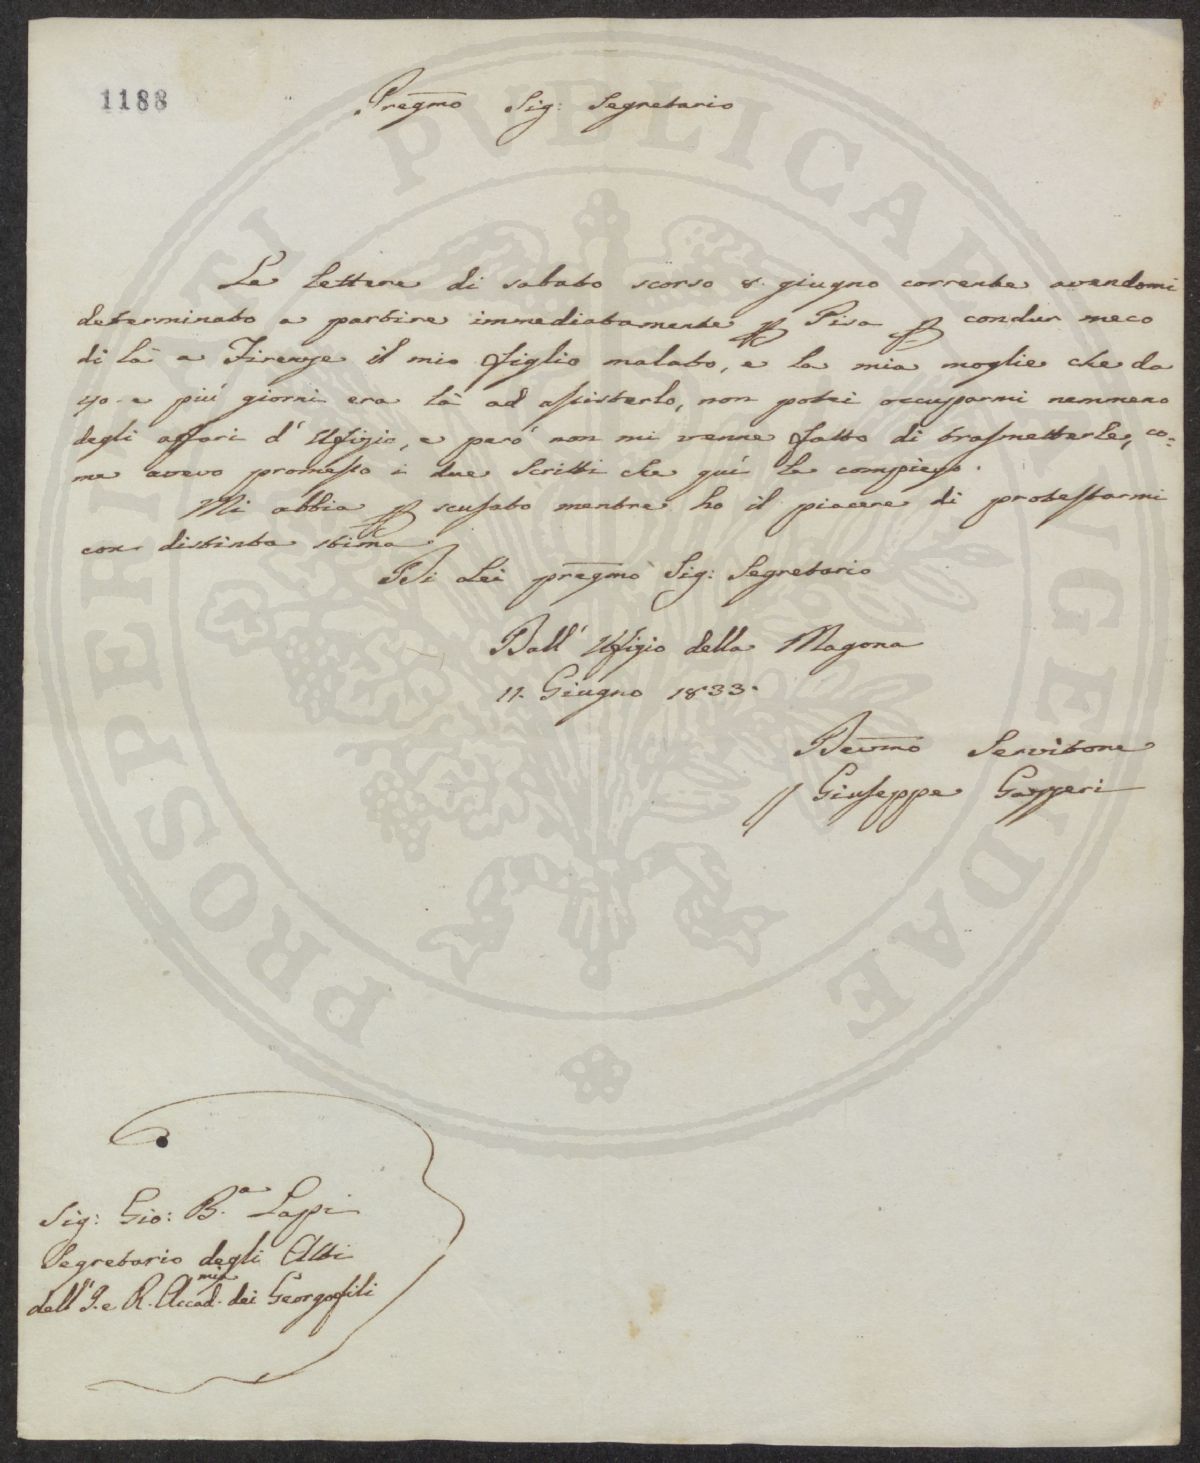 1188
Pregmo Sig: Segretario
Le lettere di sabato scorso 8. giugno corrente avendomi
determinato a partire immediatamente p Pisa p condur meco
di là a Firenze il mio figlio malato, e la mia moglie che da
40 e più giorni era là ad assisterlo, non potei occuparmi nemmeno
degli affari d' Ufizio, e però non mi venne fatto di trasmetterle, co=
me avevo promesso i due Scritti che quì le compiego.
Mi abbia p scusato mentre ho il piacere di protestarmi
con distinta stima
Di Lei pregmo Sig: Segretario
Dall' Ufizio della Magona
11. Giugno 1833.
Devmo Servitore
Giuseppe Gazzeri
Sig: Gio: B.a Lapi
Segretario degli Atti
dell' I. e R. Accad.mia dei Georgofili
PROSPERITATI PVBLICAE AVGENDAE